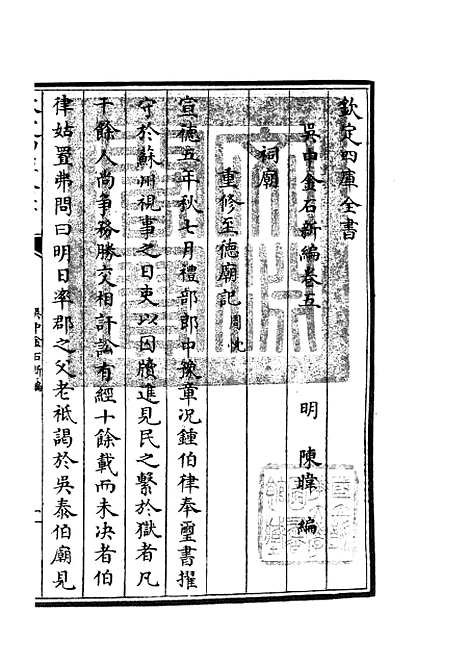 欽定四庫全書
吳中金石新編卷五
明 陳暐 編
祠廟
重修至德廟記 周忱
宣德五年秋七月禮部郎中豫章况鍾伯律奉璽書擢
守於蘇州視事之日吏以囚牘進見民之繫於獄者凡
千餘人尚爭務勝交相訐訟有經十餘載而未决者伯
律姑置弗問曰明日率郡之父老祗謁於吳泰伯廟見
吳中金石新編